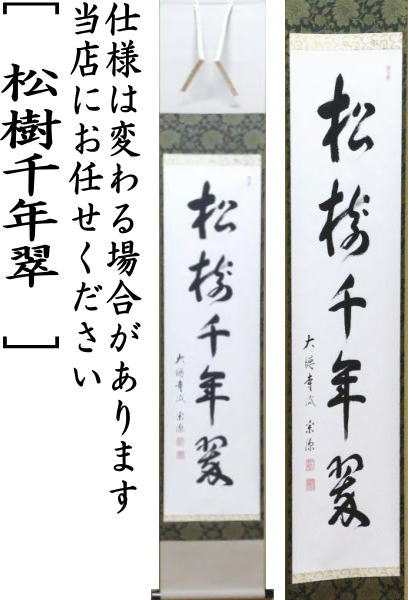 仕様は変わる場合があります
当店にお任せください
[ 松樹千年翠 ]
松樹千年翠
松樹千年翠